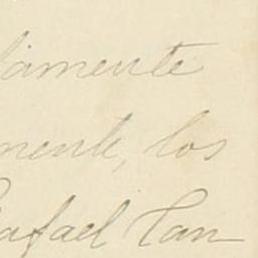 lamente
mente, los
Rafael Tan-